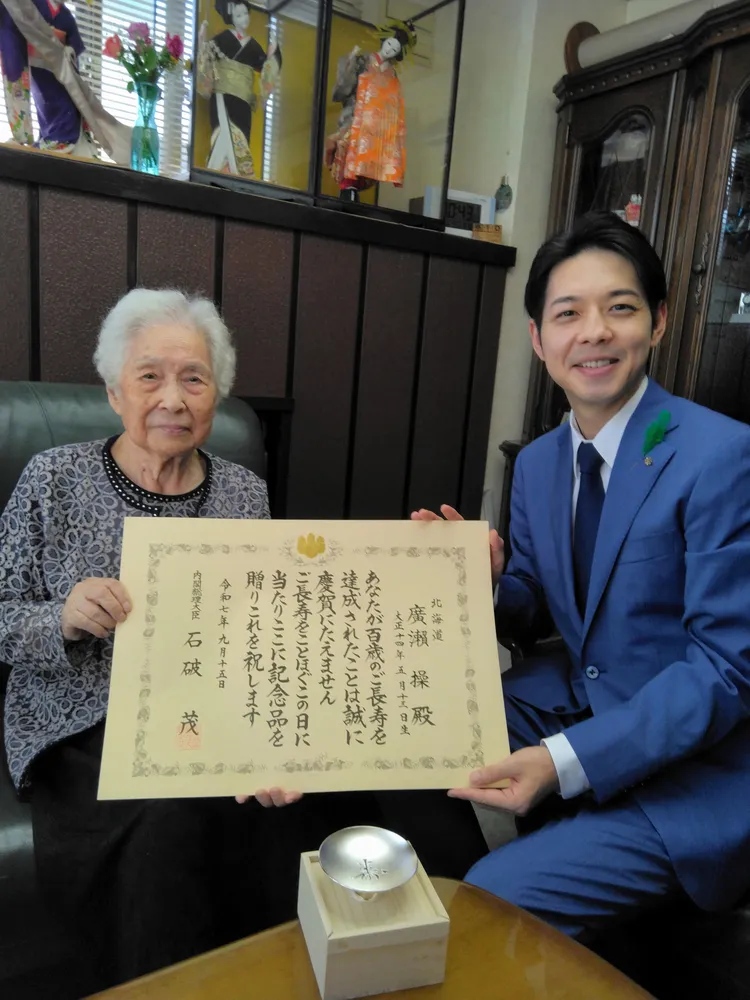 北海道
廣瀬 操 殿
大正十四年 五月十三日生
あなたが百歳のご長寿を
達成されたことは誠に
慶賀にたえません
ご長寿をことほぐこの日に
当たりここに記念品を
贈りこれを祝します
令和七年九月十五日
内閣総理大臣 石破 茂
寿